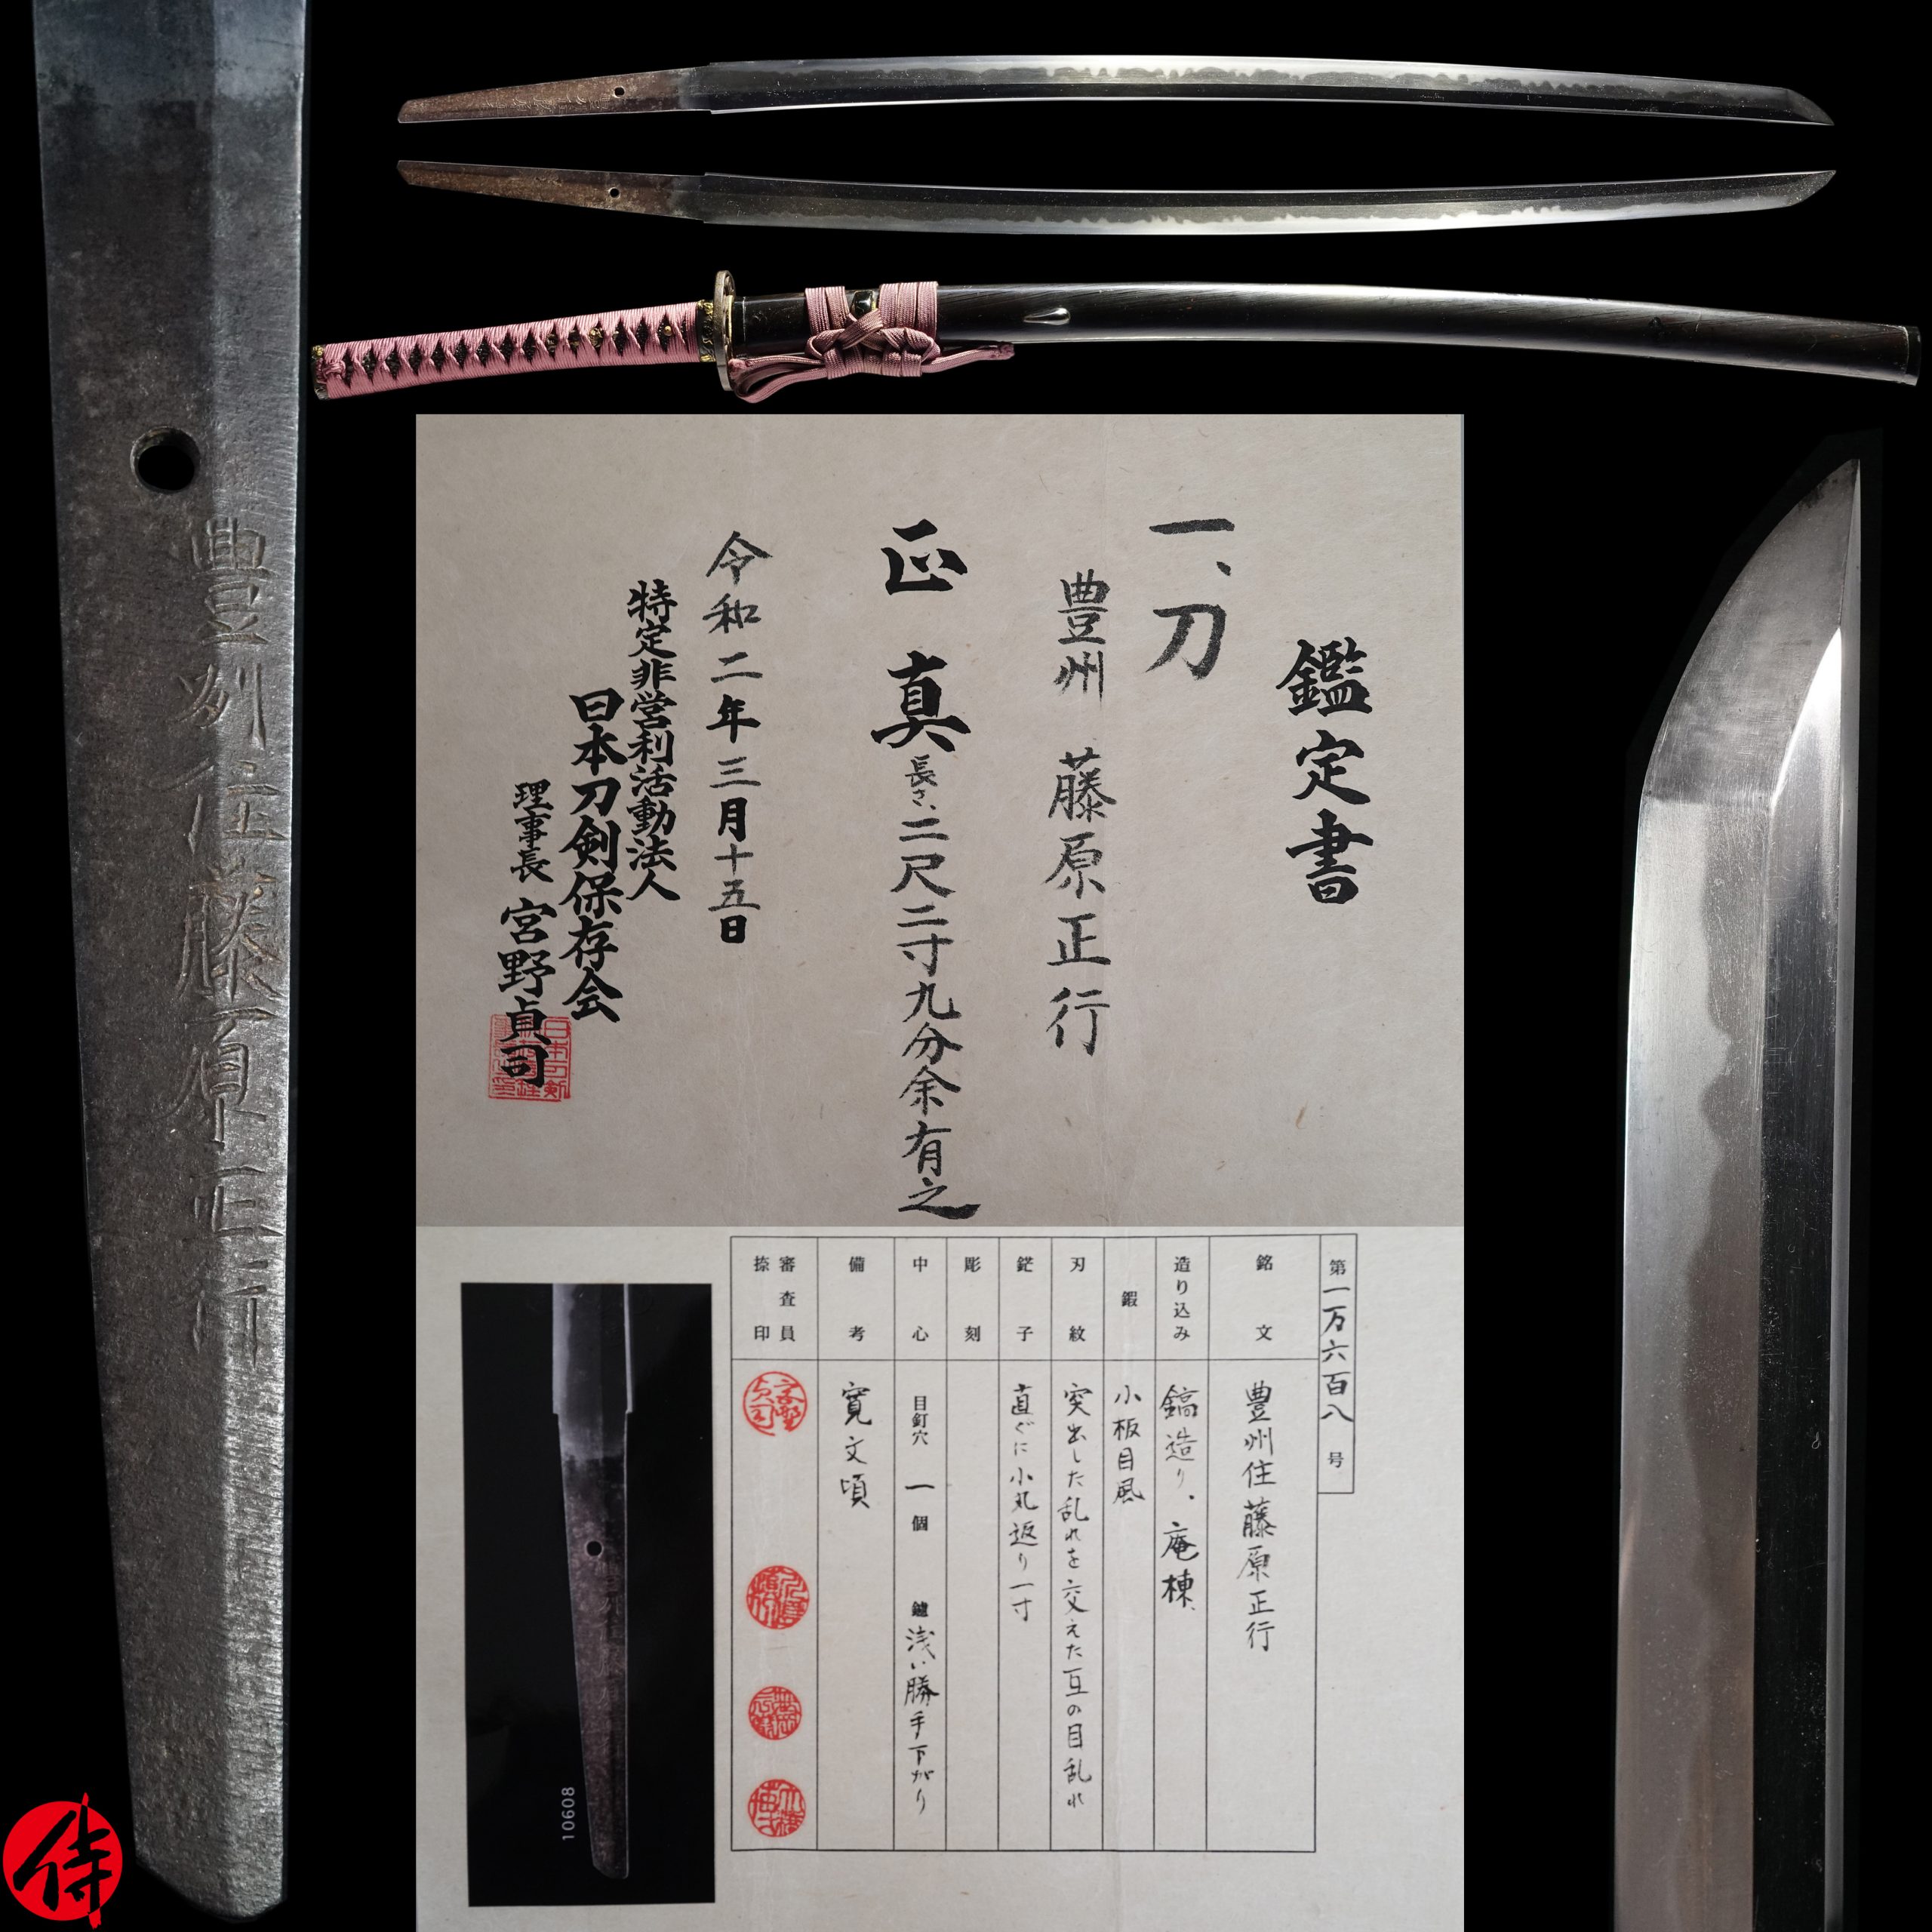 豊州住藤原正行
鑑定書
一、刀
豊州 藤原正行
正真
長さ、二尺二寸九分余有之
令和二年三月十五日
特定非営利活動法人
日本刀剣保存会
理事長 宮野貞司
第一万六百八号
銘文
豊州住藤原正行
造り込み
鎬造り、庵棟、
鍜
小板目風
刃紋
突出した乱れを交えた互の目乱れ
鋩子
直ぐに小丸返り一寸
彫刻
中心
目釘穴 一個 鑢 浅い勝手下がり
備考
寛文頃
審査員
捺印
10608
侍